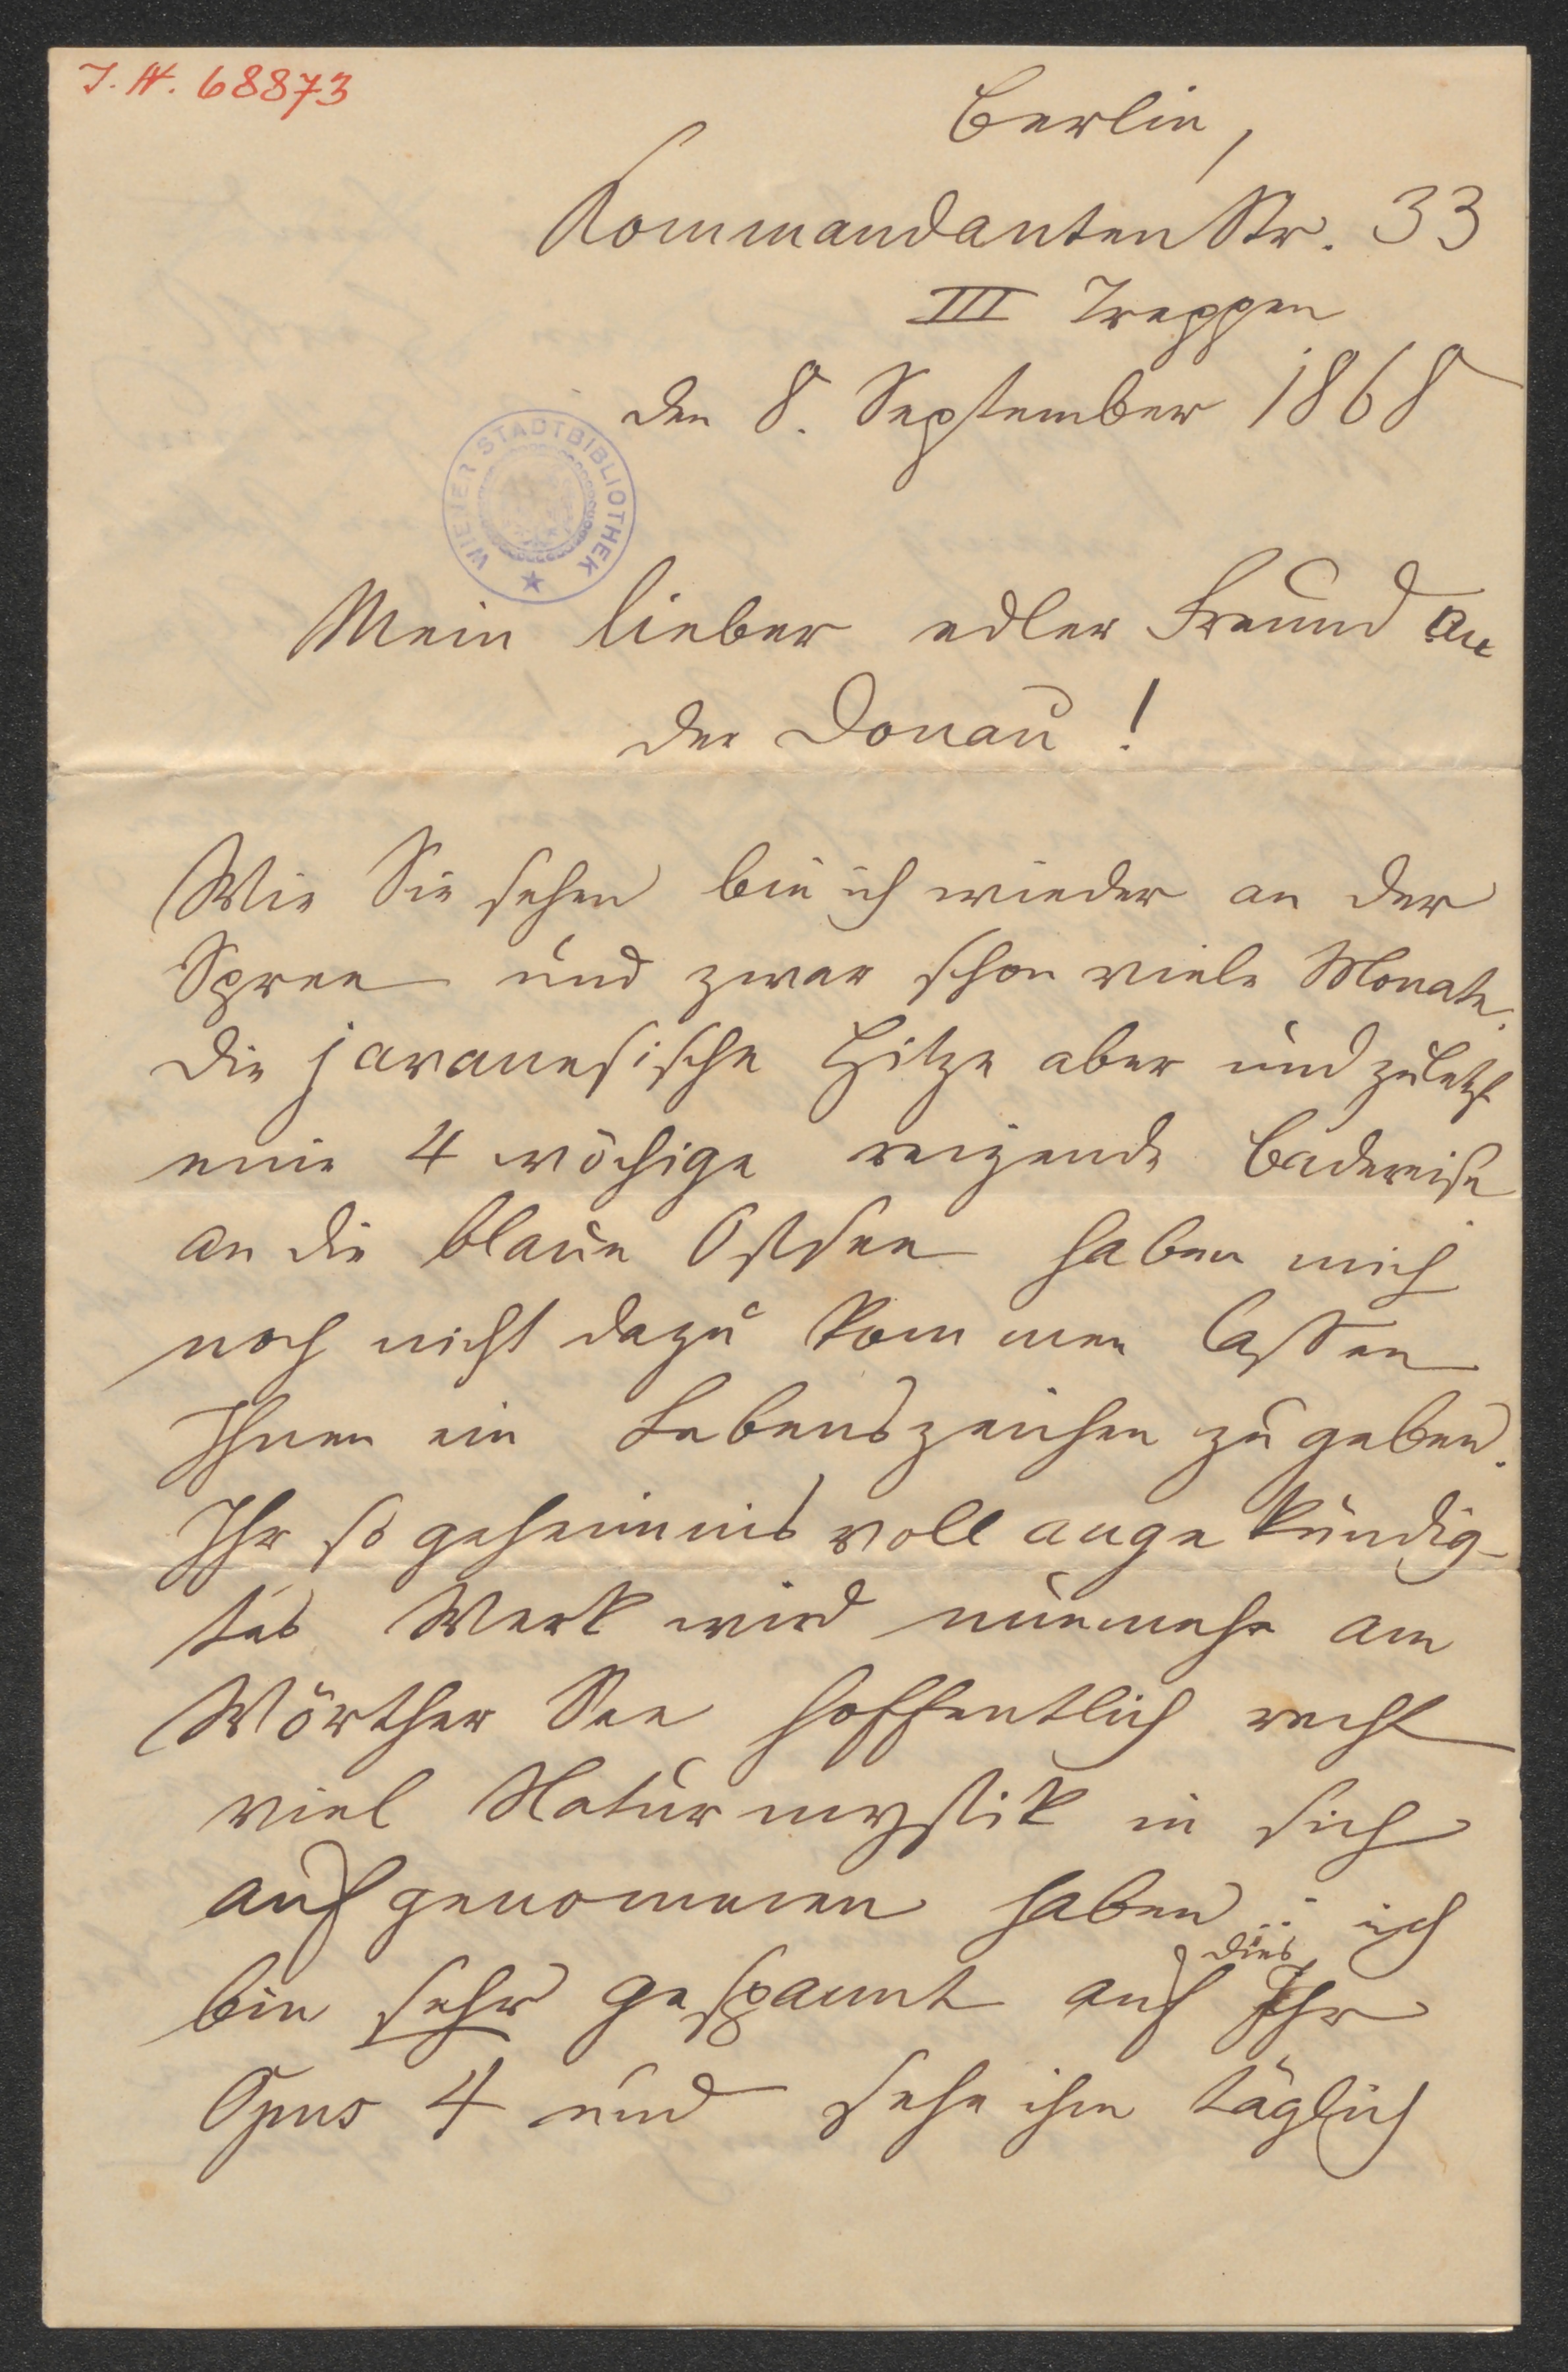 I. N. 68873
Berlin,
Kommandanten Str. 33
III Treppen
den 8. September 1868
WIENER STADTBIBLIOTHEK
Mein lieber edler Freund an
der Donau!
Wie Sie sehen bin ich wieder an der
Spree und zwar schon viele Monate.
Die javanesische Hitze aber und zuletzt
eine 4 wöchige reizende Badereise
an die blaue Ostsee haben mich
noch nicht dazu kommen lassen
Ihnen ein Lebenszeichen zu geben.
Ihr so geheimnisvoll angekündig-
tes Werk wird nunmehr am
Wörther See hoffentlich recht
viel Naturmystik in sich
aufgenommen haben; ich
dies
bin sehr gespannt auf Ihr
Opus 4 und sehe ihm täglich